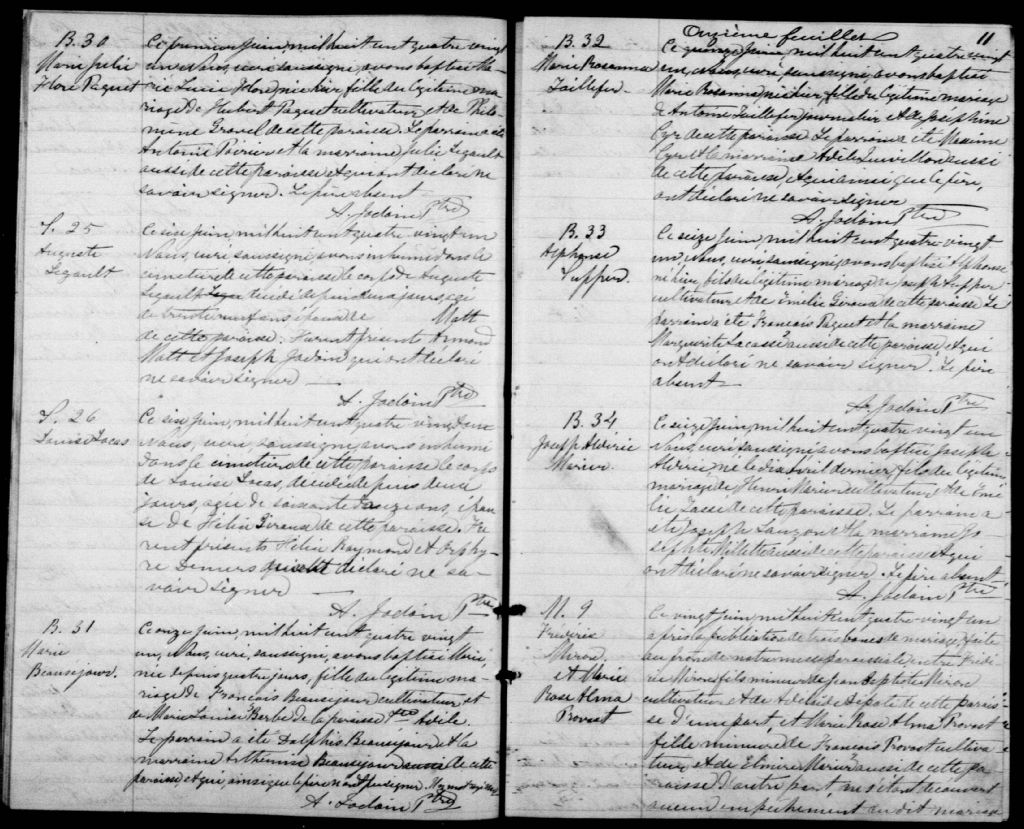 B. 30
Marie Julie
Flore Paquet
Ce premier Juin, mil huit cent quatre vingt
un, Nous, curé soussigné, avons baptisé Ma-
rie Lucie Flore, née hier, fille du légitime ma-
riage de Hubert Paquet cultivateur, et de Philo-
mène Gravel de cette paroisse. Le parrain a été
Antoine Poirier et la marraine Julie Legault
aussi de cette paroisse et qui ont déclaré ne
savoir signer. Le père absent
A. Jodoin Ptre
S. 25
Auguste
Legault
Ce six Juin, mil huit cent quatre vingt un
Nous, curé soussigné, avons inhumé dans le
cimetière de cette paroisse le corps de Auguste
Legault décédé depuis deux jours, agé
de trente neuf ans époux de Matt
de cette paroisse. Furent présents
Matt et Joseph Jodoin qui ont déclaré
ne savoir signer —
A. Jodoin Ptre
S. 26
Louise Lucas
Ce six Juin, mil huit cent quatre vingt un
Nous, curé, soussigné avons inhumé
dans le cimetière de cette paroisse le corps
de Louise Lucas, décédée depuis deux
jours, agée de soixante ans, épou-
se de Félix Giroux de cette paroisse. Fu-
rent présents Félix Raymond et Orphy-
re Demers qui ont déclaré ne sa-
voir signer —
A. Jodoin Ptre
B. 31
Marie
Beauséjour.
Ce onze Juin, mil huit cent quatre vingt
un, Nous, curé, soussigné, avons baptisé Marie,
née depuis quatre jours, fille du légitime ma-
riage de Francois Beauséjour cultivateur, et
de Marie Louise Barbe de la paroisse Ste Adèle.
Le parrain a été Dolphis Beauséjour et la
marraine Beauséjour aussi de cette
paroisse, et qui, ainsi que le père n'ont pu signer.
A. Jodoin Ptre
Onzième feuillet 11
B. 32
Marie Rosanna
Taillefer.
Ce quinze Juin, mil huit cent quatre vingt
un, Nous, curé, soussigné, avons baptisé
Marie Rosanna née hier, fille du légitime mariage
de Antoine Taillefer journalier et de Josephine
Cyr de cette paroisse. Le parrain a été Maxime
Cyr et la marraine Adèle aussi
de cette paroisse, et qui ainsi que le père,
ont déclaré ne savoir signer
A. Jodoin Ptre
B. 33
Alphonse
Supper.
Ce seize Juin, mil huit cent quatre vingt
un, Nous, curé soussigné, avons baptisé Alphonse
né hier, fils du légitime mariage de Joseph Supper
cultivateur et de Émélie Giroux de cette paroisse. Le
parrain a été Francois Paquet et la marraine
Marguerite Lacasse aussi de cette paroisse, et qui
ont déclaré ne savoir signer. Le père
absent —
A. Jodoin Ptre
B. 34
Joseph Aldéric
Marier.
Ce seize Juin, mil huit cent quatre vingt un
Nous, curé soussigné avons baptisé Joseph
Aldéric né le dix Avril dernier, fils du légitime
mariage de Henri Marier cultivateur et de Émé-
lie Lasse de cette paroisse. Le parrain a
été Joseph Lauzon et la marraine Jo-
sephte Millette aussi de cette paroisse et qui
ont déclaré ne savoir signer. Le père absent
A. Jodoin Ptre
M. 9
Frédéric
Miron.
et Marie
Rose Alma
Provost
Ce vingt Juin, mil huit cent quatre vingt un
après la publication de trois bancs de mariage, faite
au prône de notre messe paroissiale, entre Frédé-
ric Miron, fils mineur de Miron
cultivateur et de Adelaïde de cette parois-
se d'une part, et Marie Rose Alma Provost
fille mineure de Francois Provost cultiva-
teur, et de Elmire Marier aussi de cette pa-
roisse d'autre part, ne s'étant découvert
aucun empêchement au dit mariage